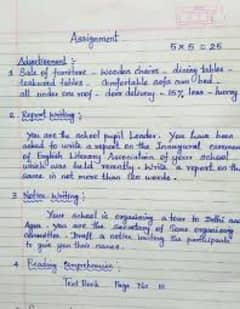 Assignment
5 x 5 = 25
Advertisement :
1. Sale of furniture - Wooden chairs - dining tables -
teakwood tables - Comfortable sofa and bed -
all under one roof - door delivery - 15% less - hurry
2. Report Writing :
You are the school pupil Leader. You have been
asked to write a report on the Inaugural ceremony
of English Literary Association of your school
which was held recently. Write a report on the
same in not more than ten words.
3 Notice Writing :
Your school is organising a tour to Delhi and
Agra. You are the Secretary of the organising
committee. Draft a notice inviting the participants
to give you their names.
4 Reading Comprehension :
Text Book Page No